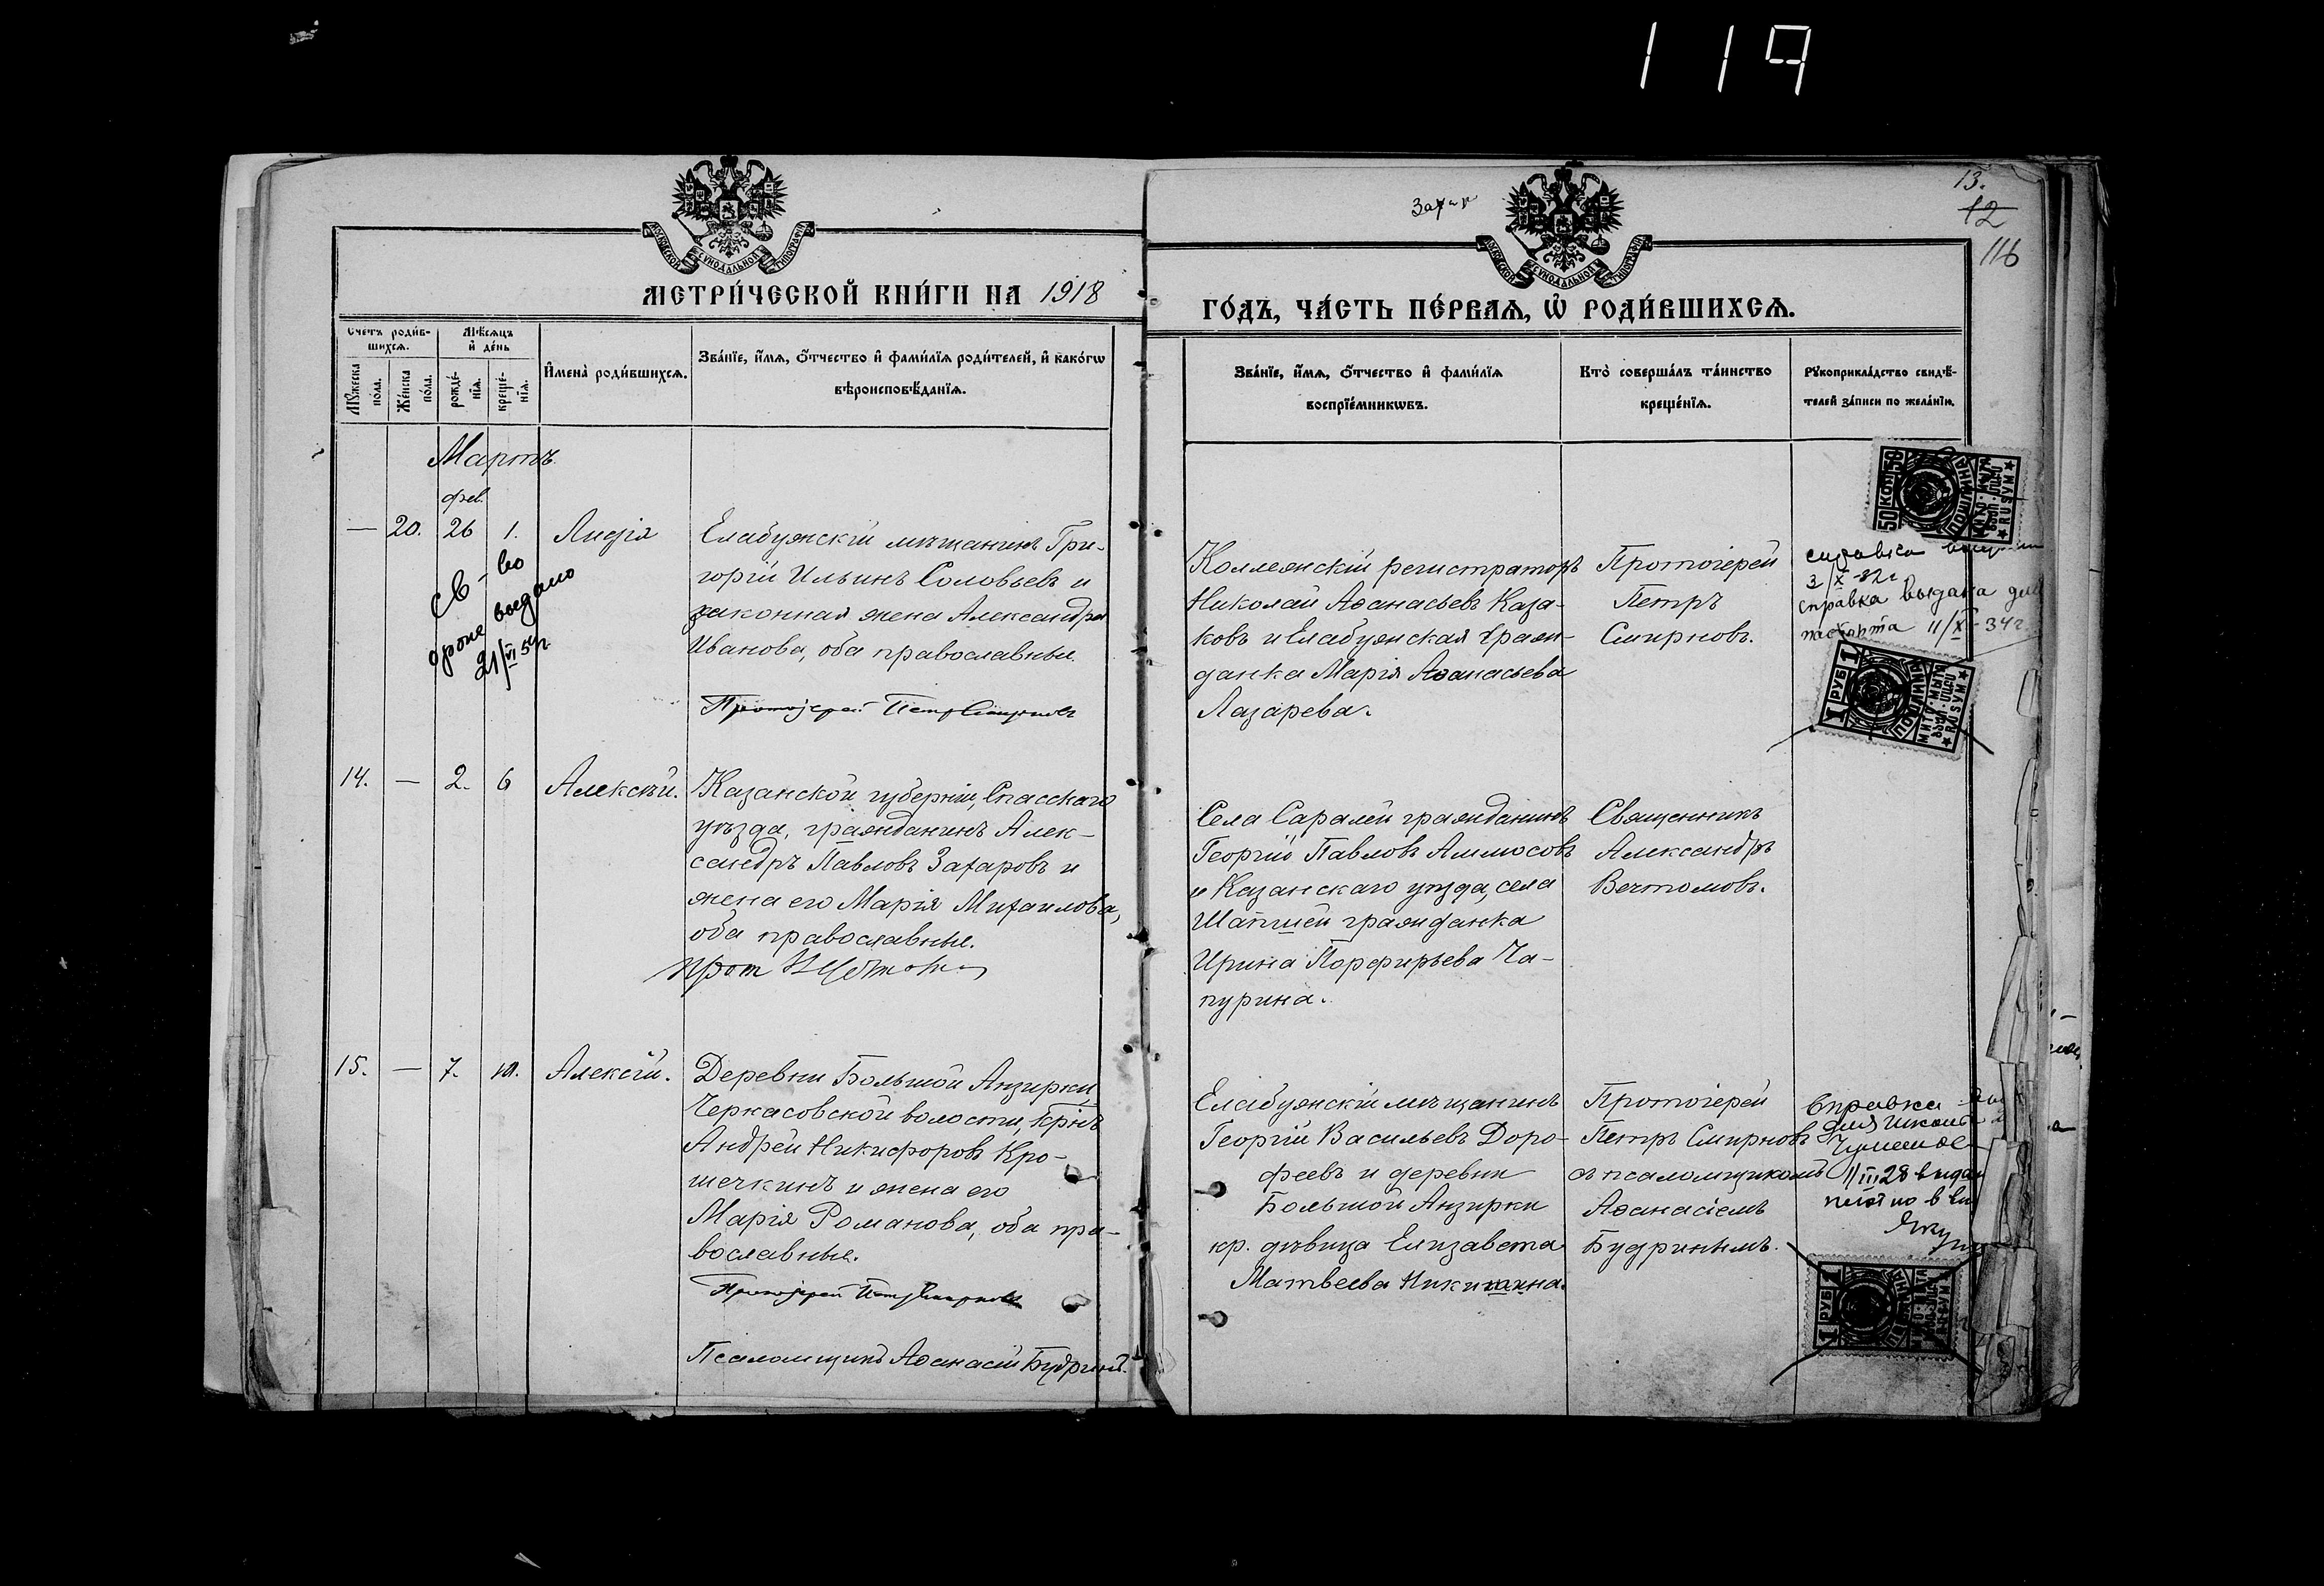 119
Захар
13.
12
116
МОСКОВСКОЙ СѴНОДАЛЬНОЙ ТИПОГРАФІИ
МОСКОВСКОЙ СѴНОДАЛЬНОЙ ТИПОГРАФІИ
МЕТРИ́ЧЕСКОЙ КНИ́ГИ НА 1918
ГО́ДЪ, ЧА́СТЬ ПЕ́РВАѦ, Ѡ҆ РОДИ́ВШИХСѦ.
Счетъ роди́в-
шихсѧ.
Мѣ́сѧцъ
и҆ де́нь
Мꙋ́жеска
по́ла.
Же́нска
по́ла.
рожде́-
нїѧ.
креще́-
нїѧ.
И҆мена̀ роди́вшихсѧ.
Зва́нїе, и҆́мѧ, ѻ҆́тчество и҆ фами́лїѧ роди́телей, и҆ како́гѡ
вѣроисповѣ́данїѧ.
Зва́нїе, и҆́мѧ, ѻ҆́тчество и҆ фами́лїѧ
воспрїе́мникѡвъ.
Кто̀ соверша́лъ та́инство
креще́нїѧ.
Рꙋкоприкла́дство свидѣ́-
телей за́писи по жела́нїю.
Мартъ
фев.
— 20. 26 1. Лидія
Елабужскій мѣщанинъ Гри-
горій Ильинъ Соловьевъ и
законная жена Александра
Иванова, оба православные.
Протоіерей Петръ Смирновъ
св-во
выдано
21/VI
Коллежскій регистраторъ
Николай Аѳанасьевъ Каза-
ковъ и Елабужская граж-
данка Марія Аѳанасьева
Лазарева.
Протоіерей
Петръ
Смирновъ.
50 КОП 50
RUSUM
справка
3/X-32г
справка выдана для
паспорта 11/X-34г.
1 РУБ 1
RUSUM
14. — 2. 6 Алексѣй.
Казанской губерніи, Спасскаго
уѣзда, гражданинъ Алек-
сандръ Павловъ Захаровъ и
жена его Марія Михаилова,
оба православные.
Села Саралей гражданинъ
Георгій Павловъ Аммосовъ
и Казанскаго уѣзда, села
Шапшей гражданка
Ирина Порфирьева Ча-
пурина.
Священникъ
Александръ
Вечтомовъ.
15. — 7. 10. Алексій.
Деревни Большой Анзирки
Черкасовской волости, крнъ
Андрей Никифоровъ Кро-
шечкинъ и жена его
Марія Романова, оба пра-
вославные.
Протоіерей Петръ Смирновъ
Псаломщикъ Аѳанасій Будринъ.
Елабужскій мѣщанинъ
Георгій Васильевъ Доро-
феевъ и деревни
Большой Анзирки
кр. дѣвица Елизавета
Матвеева Никишина.
Протоіерей
Петръ Смирновъ
съ псаломщикомъ
Аѳанасіемъ
Будринымъ.
Справка
для
1/III 28
1 РУБ 1